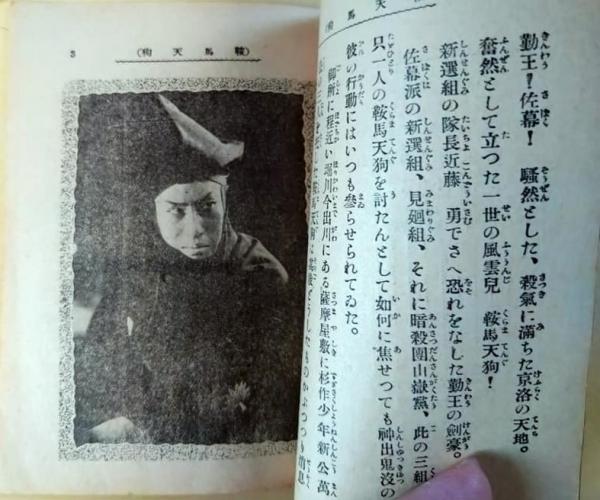 勤王！佐幕！　騒然とした、殺氣に滿ちた京洛の天地。
奮然として立つた一世の風雲兒　鞍馬天狗！
新選組の隊長近藤　勇でさへ恐れをなした勤王の劍豪。
佐幕派の新選組、見廻組、それに暗殺團山嶽黨、此の三組
只一人の鞍馬天狗を討たんとして如何に焦せつても神出鬼沒の
彼の行動にはいつも參らせられてゐた。
御所に程近い堀川今出川にある薩摩屋敷に杉作少年新公萬
(鞍馬天狗)
3